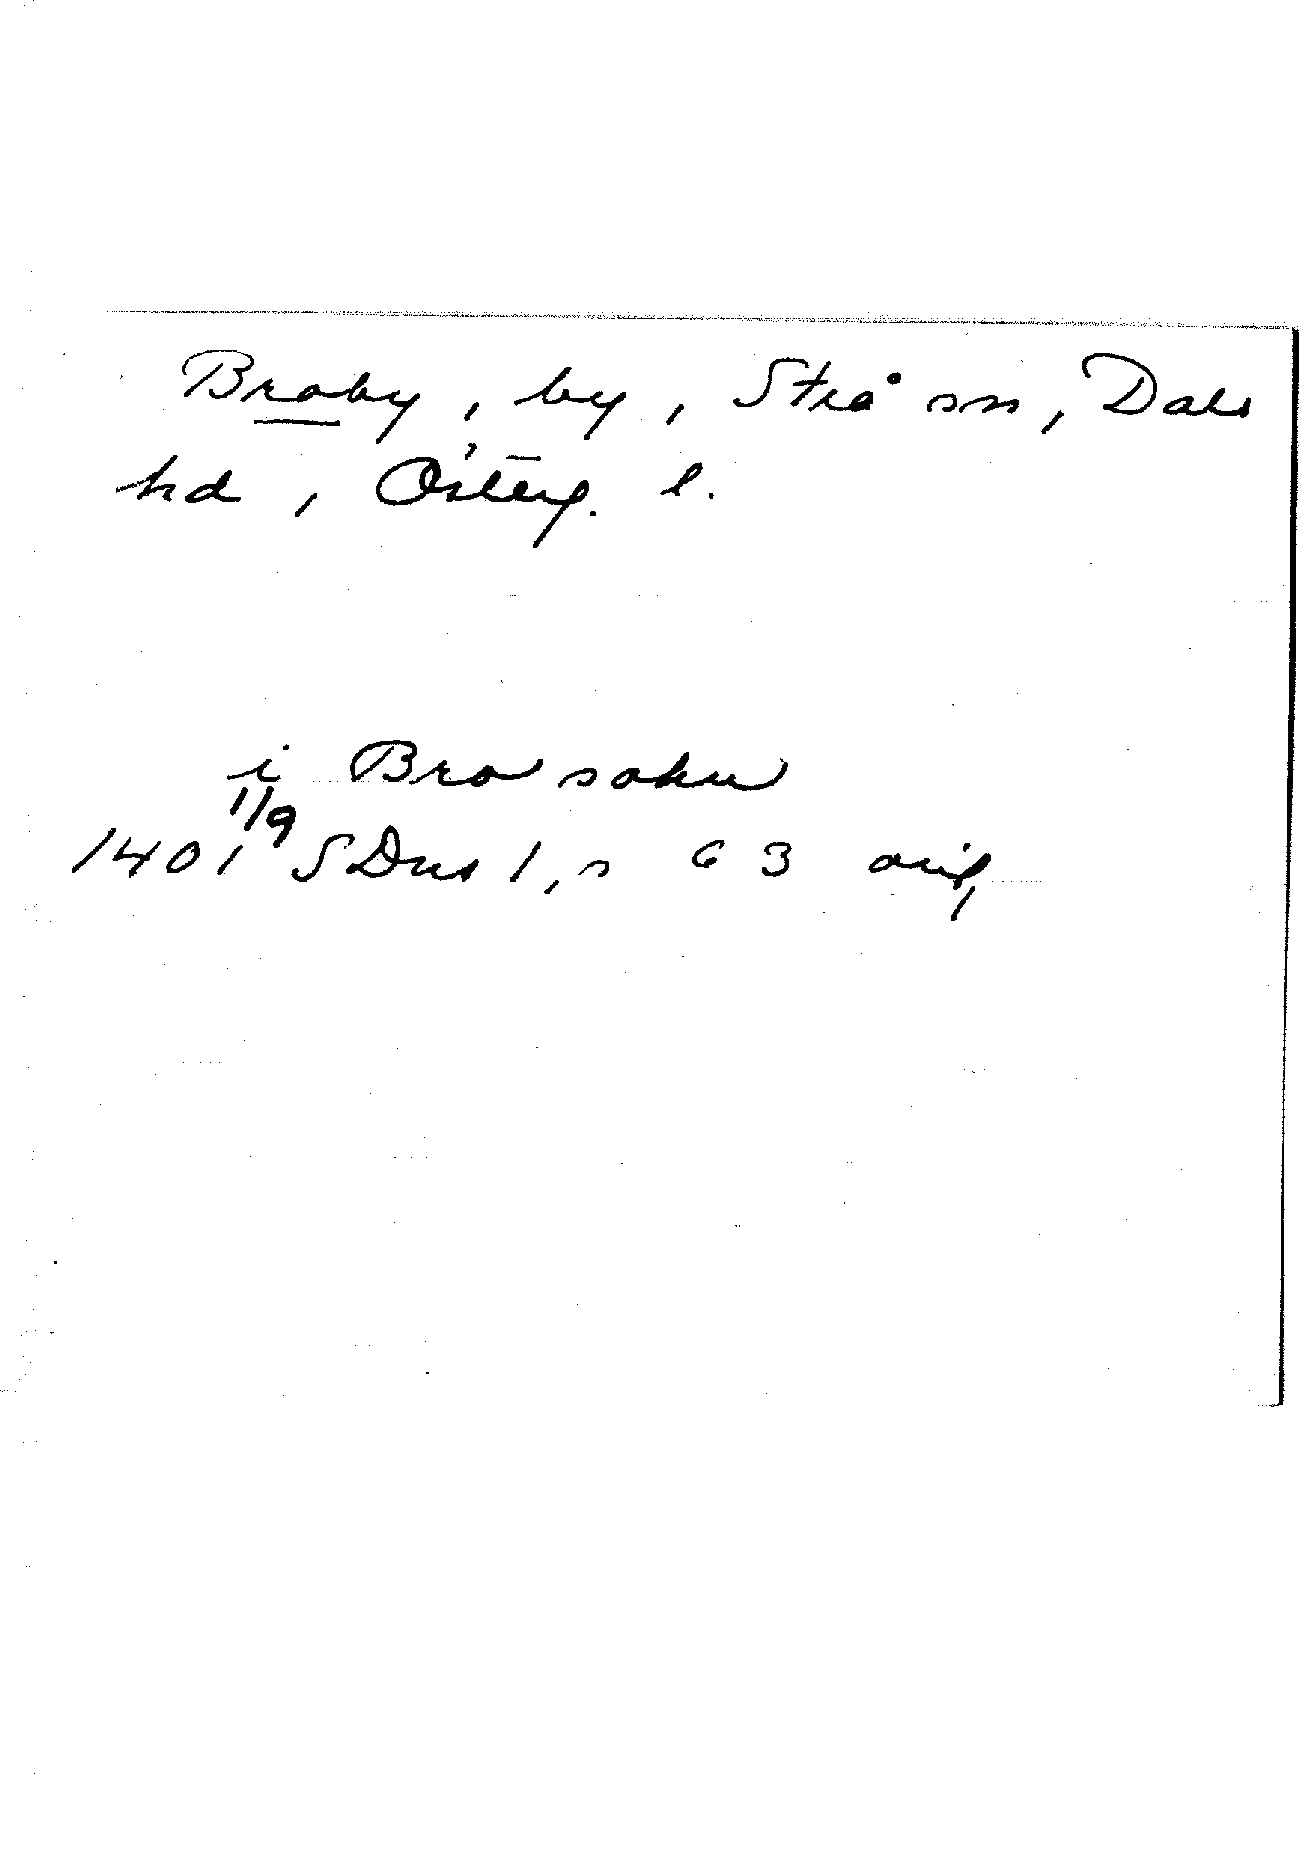 Broby, by, Strå sn, Dals
hd, Österg. l.
i Bro sokn
1401 1/9 SDns 1, s 63 orig,